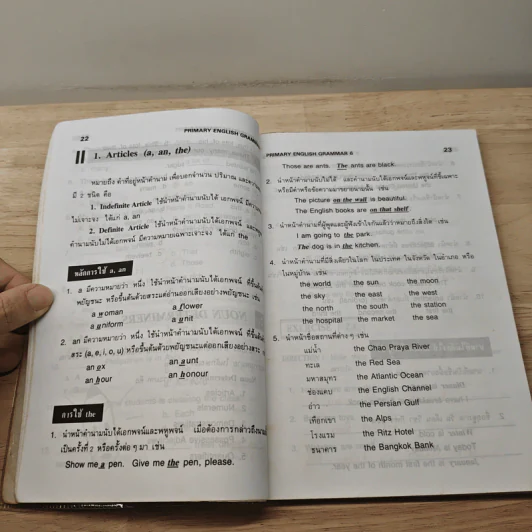 22
PRIMARY ENGLISH GRAMMAR
1. Articles (a, an, the)
หมายถึง คำที่อยู่หน้าคำนาม เพื่อบอกจำนวน ปริมาณ และความ
มี 2 ชนิด คือ
1. Indefinite Article ใช้นำหน้าคำนามนับได้ เอกพจน์ มีความ
ไม่เจาะจง ได้แก่ a, an
2. Definite Article ใช้นำหน้าคำนามนับได้ เอกพจน์ และพหู
คำนามนับไม่ได้เอกพจน์ มีความหมายเฉพาะเจาะจง ได้แก่ the
หลักการใช้ a, an
1. a มีความหมายว่า หนึ่ง ใช้นำหน้าคำนามนับได้เอกพจน์ ที่ขึ้นต้น
พยัญชนะ หรือขึ้นต้นด้วยสระแต่อ่านออกเสียงอย่างพยัญชนะ เช่น
a woman a flower
a uniform a unit
2. an มีความหมายว่า หนึ่ง ใช้นำหน้าคำนามนับได้เอกพจน์ ที่ขึ้นต้น
สระ (a, e, i, o, u) หรือขึ้นต้นด้วยพยัญชนะแต่ออกเสียงอย่างสระ
an ex an aunt
an hour an honour
การใช้ the
1. นำหน้าคำนามนับได้เอกพจน์และพหูพจน์ เมื่อต้องการกล่าวถึงนาม
เป็นครั้งที่ 2 หรือครั้งต่อ ๆ มา เช่น
Show me a pen. Give me the pen, please.
PRIMARY ENGLISH GRAMMAR 6
23
Those are ants. The ants are black.
2. นำหน้าคำนามนับไม่ได้ และคำนามนับได้เอกพจน์และพหูพจน์ที่ชี้เฉพาะ
หรือมีคำหรือข้อความมาขยายนามนั้น เช่น
The picture on the wall is beautiful.
The English books are on that shelf.
3. นำหน้าคำนามที่ผู้พูดและผู้ฟังเข้าใจกันแล้วว่าหมายถึงสิ่งใด เช่น
I am going to the park.
The dog is in the kitchen.
4. นำหน้าคำนามที่มีสิ่งเดียวในโลก ในประเทศ ในจังหวัด ในอำเภอ หรือ
ในหมู่บ้าน เช่น
the world the sun the moon
the sky the east the west
the north the south the station
the hospital the market the sea
5. นำหน้าชื่อสถานที่ต่าง ๆ เช่น
แม่น้ำ the Chao Praya River
ทะเล the Red Sea
มหาสมุทร the Atlantic Ocean
ช่องแคบ the English Channel
อ่าว the Persian Gulf
เทือกเขา the Alps
โรงแรม the Ritz Hotel
ธนาคาร the Bangkok Bank